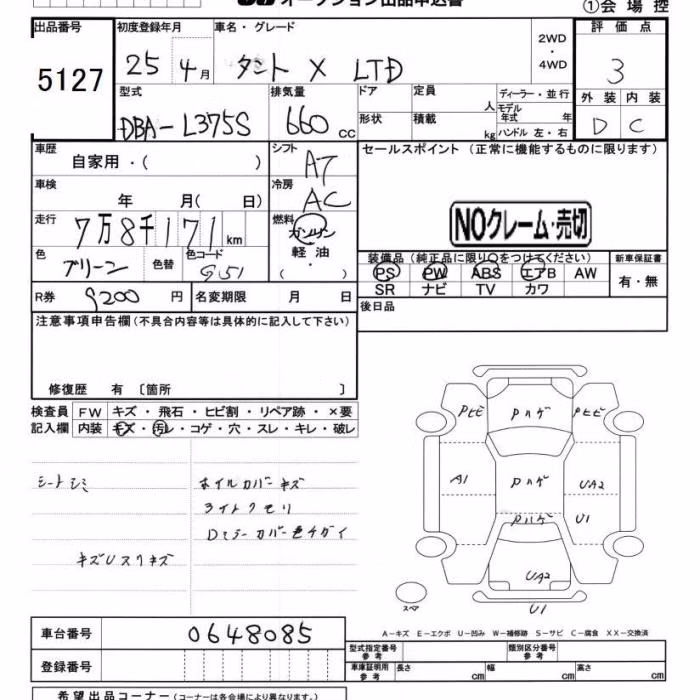 オークション出品申込書
①会場控
出品番号 初度登録年月 車名・グレード 2WD・4WD 評価点
5127 25 4月 タント X LTD 3
型式 排気量 ドア 定員 人 ディーラー・並行 外装 内装
モデル年式 年
DBA-L375S 660cc 形状 積載 kg ハンドル 左・右 D C
車歴 自家用・( ) シフト AT セールスポイント (正常に機能するものに限ります)
車検 年 月( 日) 冷房 AC
NOクレーム・売切
走行 7万8千171km 燃料 ガソリン 軽油 ( ・ )
色 グリーン 色替 色コード G51
装備品(純正品に限り○をつけてください) 新車保証書
PS PW ABS エアB AW 有・無
SR ナビ TV カワ
R券 9200円 名変期限 月 日 後日品
注意事項申告欄(不具合内容等は具体的に記入して下さい)
修復歴 有 〔箇所 〕
検査員 FW キズ・飛石・ヒビ割・リペア跡・×要
記入欄 内装 キズ・汚レ・コゲ・穴・スレ・キレ・破レ
シートシミ ホイルカバーキズ
ライトクモリ
Dミラーカバー色チガイ
キズUスリキズ
Pヒビ Pハゲ Pヒビ
A1 Pハゲ UA2
Pハゲ U1
UA2
スペア U1
A-キズ E-エクボ U-凹み W-補修跡 S-サビ C-腐食 XX-交換済
車台番号 0648085
型式指定番号 参考 類別区分番号 参考
登録番号 車庫証明用 参考 長さ cm 幅 cm 高さ cm
希望出品コーナー(コーナーは各会場により異なります。)